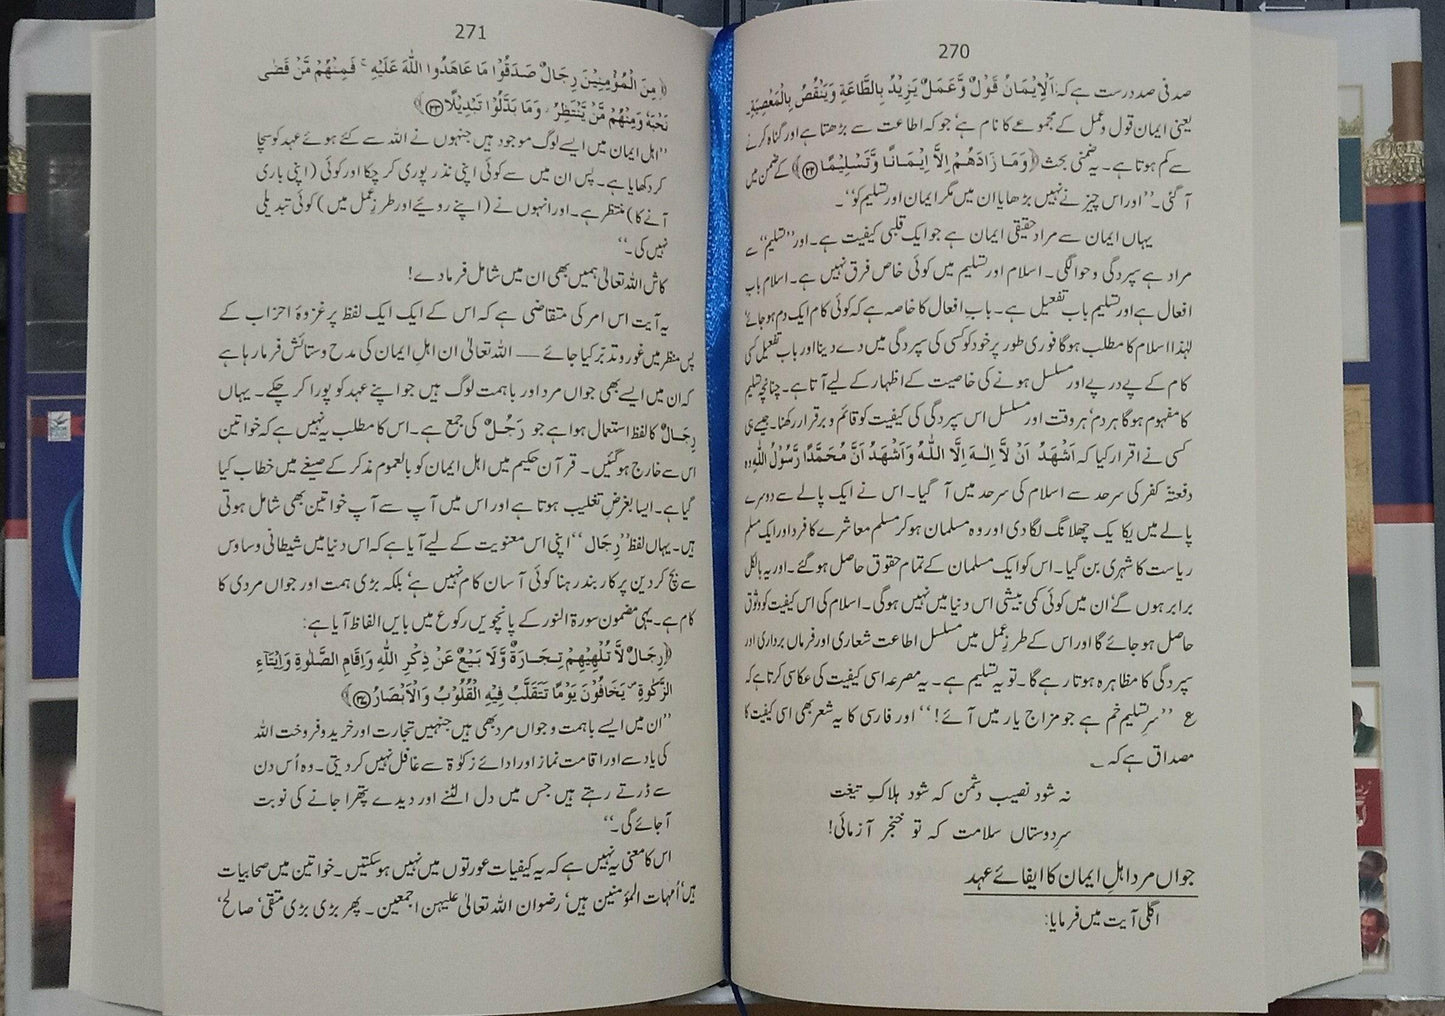 270
صد فی صد درست ہے کہ: اَلْاِیْمَانُ قَوْلٌ وَّعَمَلٌ یَزِیْدُ بِالطَّاعَةِ وَیَنْقُصُ بِالْمَعْصِیَةِ۔
یعنی ایمان قول و عمل کے مجموعے کا نام ہے‘ جو کہ اطاعت سے بڑھتا ہے اور گناہ کرنے
سے کم ہوتا ہے۔ یہ ضمنی بحث ﴿وَمَا زَادَھُمْ اِلَّا اِیْمَانًا وَّتَسْلِیْمًا ﴿۲۲﴾﴾ کے ضمن میں
آ گئی۔ ’’اور اس چیز نے نہیں بڑھایا ان میں مگر ایمان اور تسلیم کو‘‘۔
یہاں ایمان سے مراد حقیقی ایمان ہے جو ایک قلبی کیفیت ہے۔ اور ’’تسلیم‘‘ سے
مراد ہے سپردگی و حوالگی۔ اسلام اور تسلیم میں کوئی خاص فرق نہیں ہے۔ اسلام باب
افعال ہے اور تسلیم باب تفعیل ہے۔ باب افعال کا خاصہ ہے کہ کوئی کام ایک دم ہو جائے‘
لہٰذا اسلام کا مطلب ہوگا فوری طور پر خود کو کسی کی سپردگی میں دے دینا اور باب تفعیل کسی
کام کے پے در پے اور مسلسل ہونے کی خاصیت کے اظہار کے لیے آتا ہے۔ چنانچہ تسلیم
کا مفہوم ہوگا ہر دم‘ ہر وقت اور مسلسل اس سپردگی کی کیفیت کو قائم و برقرار رکھنا۔ جیسے ہی
کسی نے اقرار کیا کہ اَشْھَدُ اَنْ لَّا اِلٰـهَ اِلَّا اللّٰهُ وَاَشْھَدُ اَنَّ مُحَمَّدًا رَّسُوْلُ اللّٰهِ وہ
دفعتہً کفر کی سرحد سے اسلام کی سرحد میں آ گیا۔ اس نے ایک پالے سے دوسرے
پالے میں یکا یک چھلانگ لگا دی اور وہ مسلمان ہو کر مسلم معاشرے کا فرد اور ایک مسلم
ریاست کا شہری بن گیا۔ اس کو ایک مسلمان کے تمام حقوق حاصل ہو گئے۔ اور یہ بالکل
برابر ہوں گے‘ ان میں کوئی کمی بیشی اس دنیا میں نہیں ہوگی۔ اسلام کی اس کیفیت کو وثوق
حاصل ہو جائے گا اور اس کے طرزِ عمل میں مسلسل اطاعت شعاری اور فرماں برداری اور
سپردگی کا مظاہرہ ہوتا رہے گا۔ تو یہ تسلیم ہے۔ یہ مصرعہ اسی کیفیت کی عکاسی کرتا ہے کہ
ع ’’سرِ تسلیم خم ہے جو مزاج یار میں آئے!‘‘ اور فارسی کا یہ شعر بھی اسی کیفیت کا
مصداق ہے کہ ؎
نہ شود نصیب دشمن کہ شود ہلاکِ تیغت
سرِ دوستاں سلامت کہ تو خنجر آزمائی!
جواں مرد اہلِ ایمان کا ایفائے عہد
اگلی آیت میں فرمایا:
271
﴿مِنَ الْمُؤْمِنِیْنَ رِجَالٌ صَدَقُوْا مَا عَاھَدُوا اللّٰهَ عَلَیْهِ ۚ فَمِنْھُمْ مَّنْ قَضٰی
نَحْبَهٗ وَمِنْھُمْ مَّنْ یَّنْتَظِرُ ۖ وَمَا بَدَّلُوْا تَبْدِیْلًا ﴿۲۳﴾﴾
’’اہل ایمان میں ایسے لوگ موجود ہیں جنہوں نے اللہ سے کئے ہوئے عہد کو سچا
کر دکھایا ہے۔ پس ان میں سے کوئی اپنی نذر پوری کر چکا اور کوئی (اپنی باری
آنے کا) منتظر ہے۔ اور انہوں نے (اپنے رویے اور طرزِ عمل میں) کوئی تبدیلی
نہیں کی۔‘‘
کاش اللہ تعالیٰ ہمیں بھی ان میں شامل فرما دے!
یہ آیت اس امر کی متقاضی ہے کہ اس کے ایک ایک لفظ پر غزوۂ احزاب کے
پس منظر میں غور و تدبّر کیا جائے —— اللہ تعالیٰ ان اہلِ ایمان کی مدح و ستائش فرما رہا ہے
کہ ان میں ایسے بھی جواں مرد اور باہمت لوگ ہیں جو اپنے عہد کو پورا کر چکے۔ یہاں
رِجَـالٌ کا لفظ استعمال ہوا ہے جو رَجُـلٌ کی جمع ہے۔ اس کا مطلب یہ نہیں ہے کہ خواتین
اس سے خارج ہو گئیں۔ قرآن حکیم میں اہل ایمان کو بالعموم مذکر کے صیغے میں خطاب کیا
گیا ہے۔ ایسا بغرضِ تغلیب ہوتا ہے اور اس میں آپ سے آپ خواتین بھی شامل ہوتی
ہیں۔ یہاں لفظ ’’رِجَال‘‘ اپنی اس معنویت کے لیے آیا ہے کہ اس دنیا میں شیطانی وساوس
سے بچ کر دین پر کاربند رہنا کوئی آسان کام نہیں ہے‘ بلکہ بڑی ہمت اور جواں مردی کا
کام ہے۔ یہی مضمون سورۃ النور کے پانچویں رکوع میں بایں الفاظ آیا ہے:
﴿رِجَالٌ لَّا تُلْھِیْھِمْ تِجَـارَةٌ وَّلَا بَیْعٌ عَنْ ذِكْرِ اللّٰهِ وَاِقَامِ الصَّلٰوةِ وَاِیْتَآءِ
الزَّكٰوةِ ۙ یَخَافُوْنَ یَوْمًا تَتَقَلَّبُ فِیْهِ الْقُلُوْبُ وَالْاَبْصَارُ ﴿۳۷﴾﴾
’’ان میں ایسے باہمت و جواں مرد بھی ہیں جنہیں تجارت اور خرید و فروخت اللہ
کی یاد سے اور اقامت نماز اور ادائے زکوٰۃ سے غافل نہیں کر دیتی۔ وہ اُس دن
سے ڈرتے رہتے ہیں جس میں دل الٹنے اور دیدے پتھرا جانے کی نوبت
آ جائے گی۔‘‘
اس کا معنی یہ نہیں ہے کہ یہ کیفیات عورتوں میں نہیں ہو سکتیں۔ خواتین میں صحابیات
ہیں‘ اُمہات المؤمنین ہیں‘ رضوان اللہ تعالیٰ علیہن اجمعین۔ پھر بڑی بڑی متقی‘ صالح‘